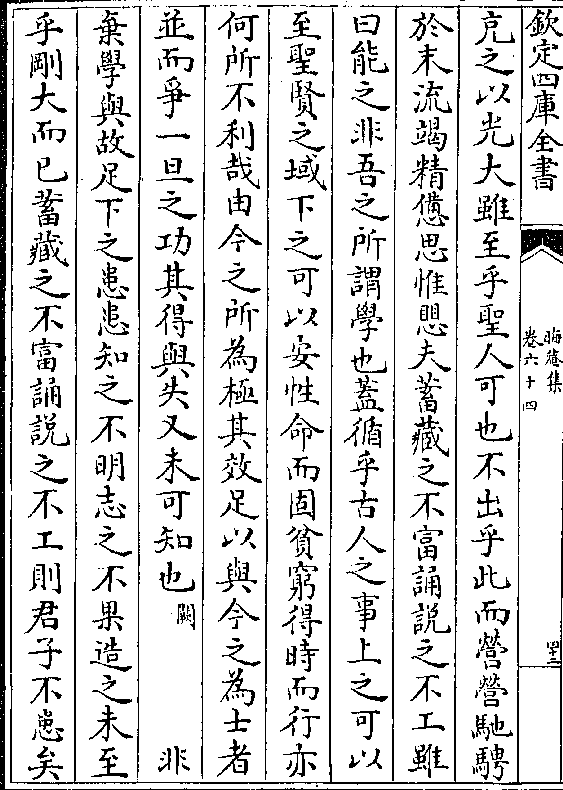 欽定四庫全書
晦菴集
卷六十四
四十三
充之以光大雖至乎聖人可也不出乎此而營營馳騁
於末流竭精憊思惟恐夫蓄藏之不富誦説之不工雖
曰能之非吾之所謂學也蓋循乎古人之事上之可以
至聖賢之域下之可以安性命而固貧窮得時而行亦
何所不利哉由今之所為極其效足以與今之為士者
並而爭一旦之功其得與失又未可知也闕　　　非
棄學與故足下之患患知之不明志之不果造之未至
乎剛大而已蓄藏之不富誦説之不工則君子不患矣